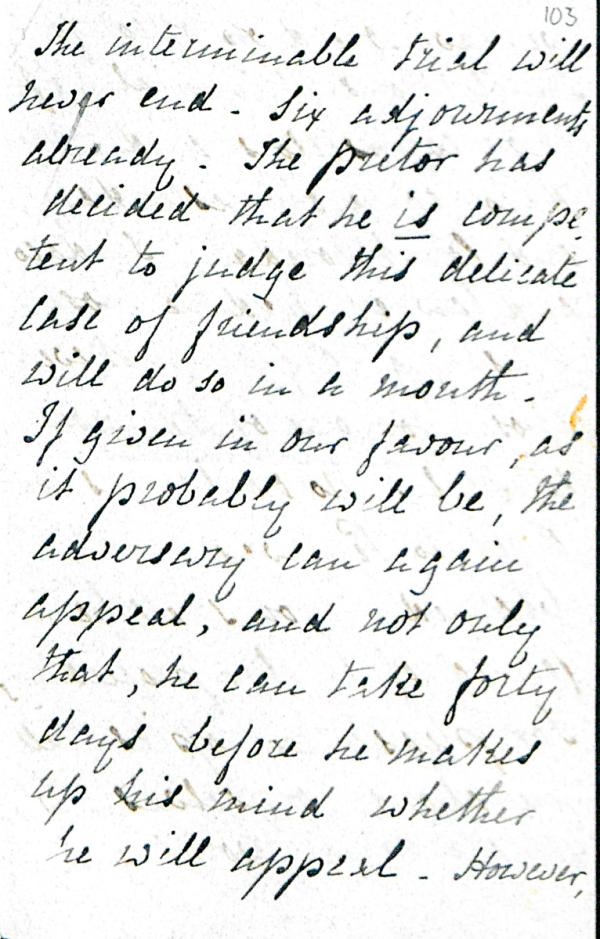 103
The interminable trial will
never end - Six adjournments
already - The pretor has
decided that he is compe-
tent to judge this delicate
case of friendship, and
will do so in a month -
If given in our favour, as
it probably will be, the
adversary can again
appeal, and not only
that, he can take forty
days before he makes
up his mind whether
he will appeal - However,